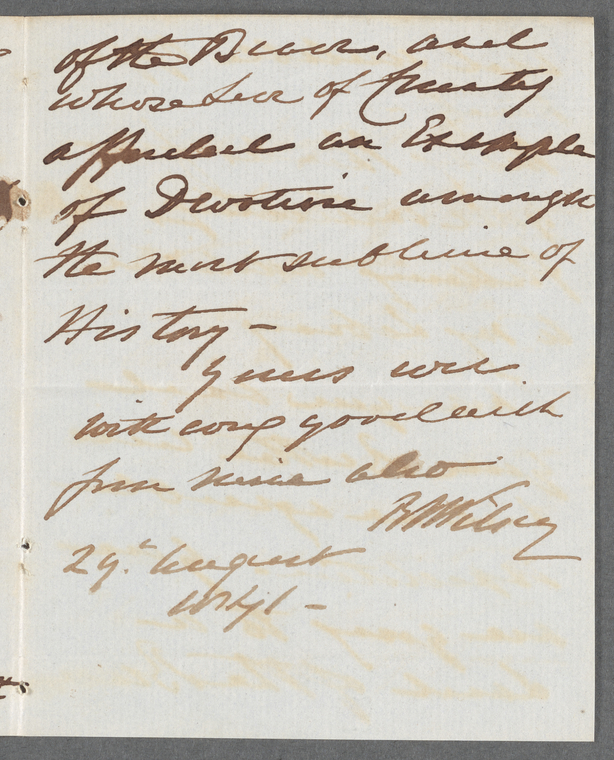 of the Brave, and
whose Love of Country
afforded an Example
of Devotion amongst
the most sublime of
History –
Yours ever
with every good wish
from mine also
29th August